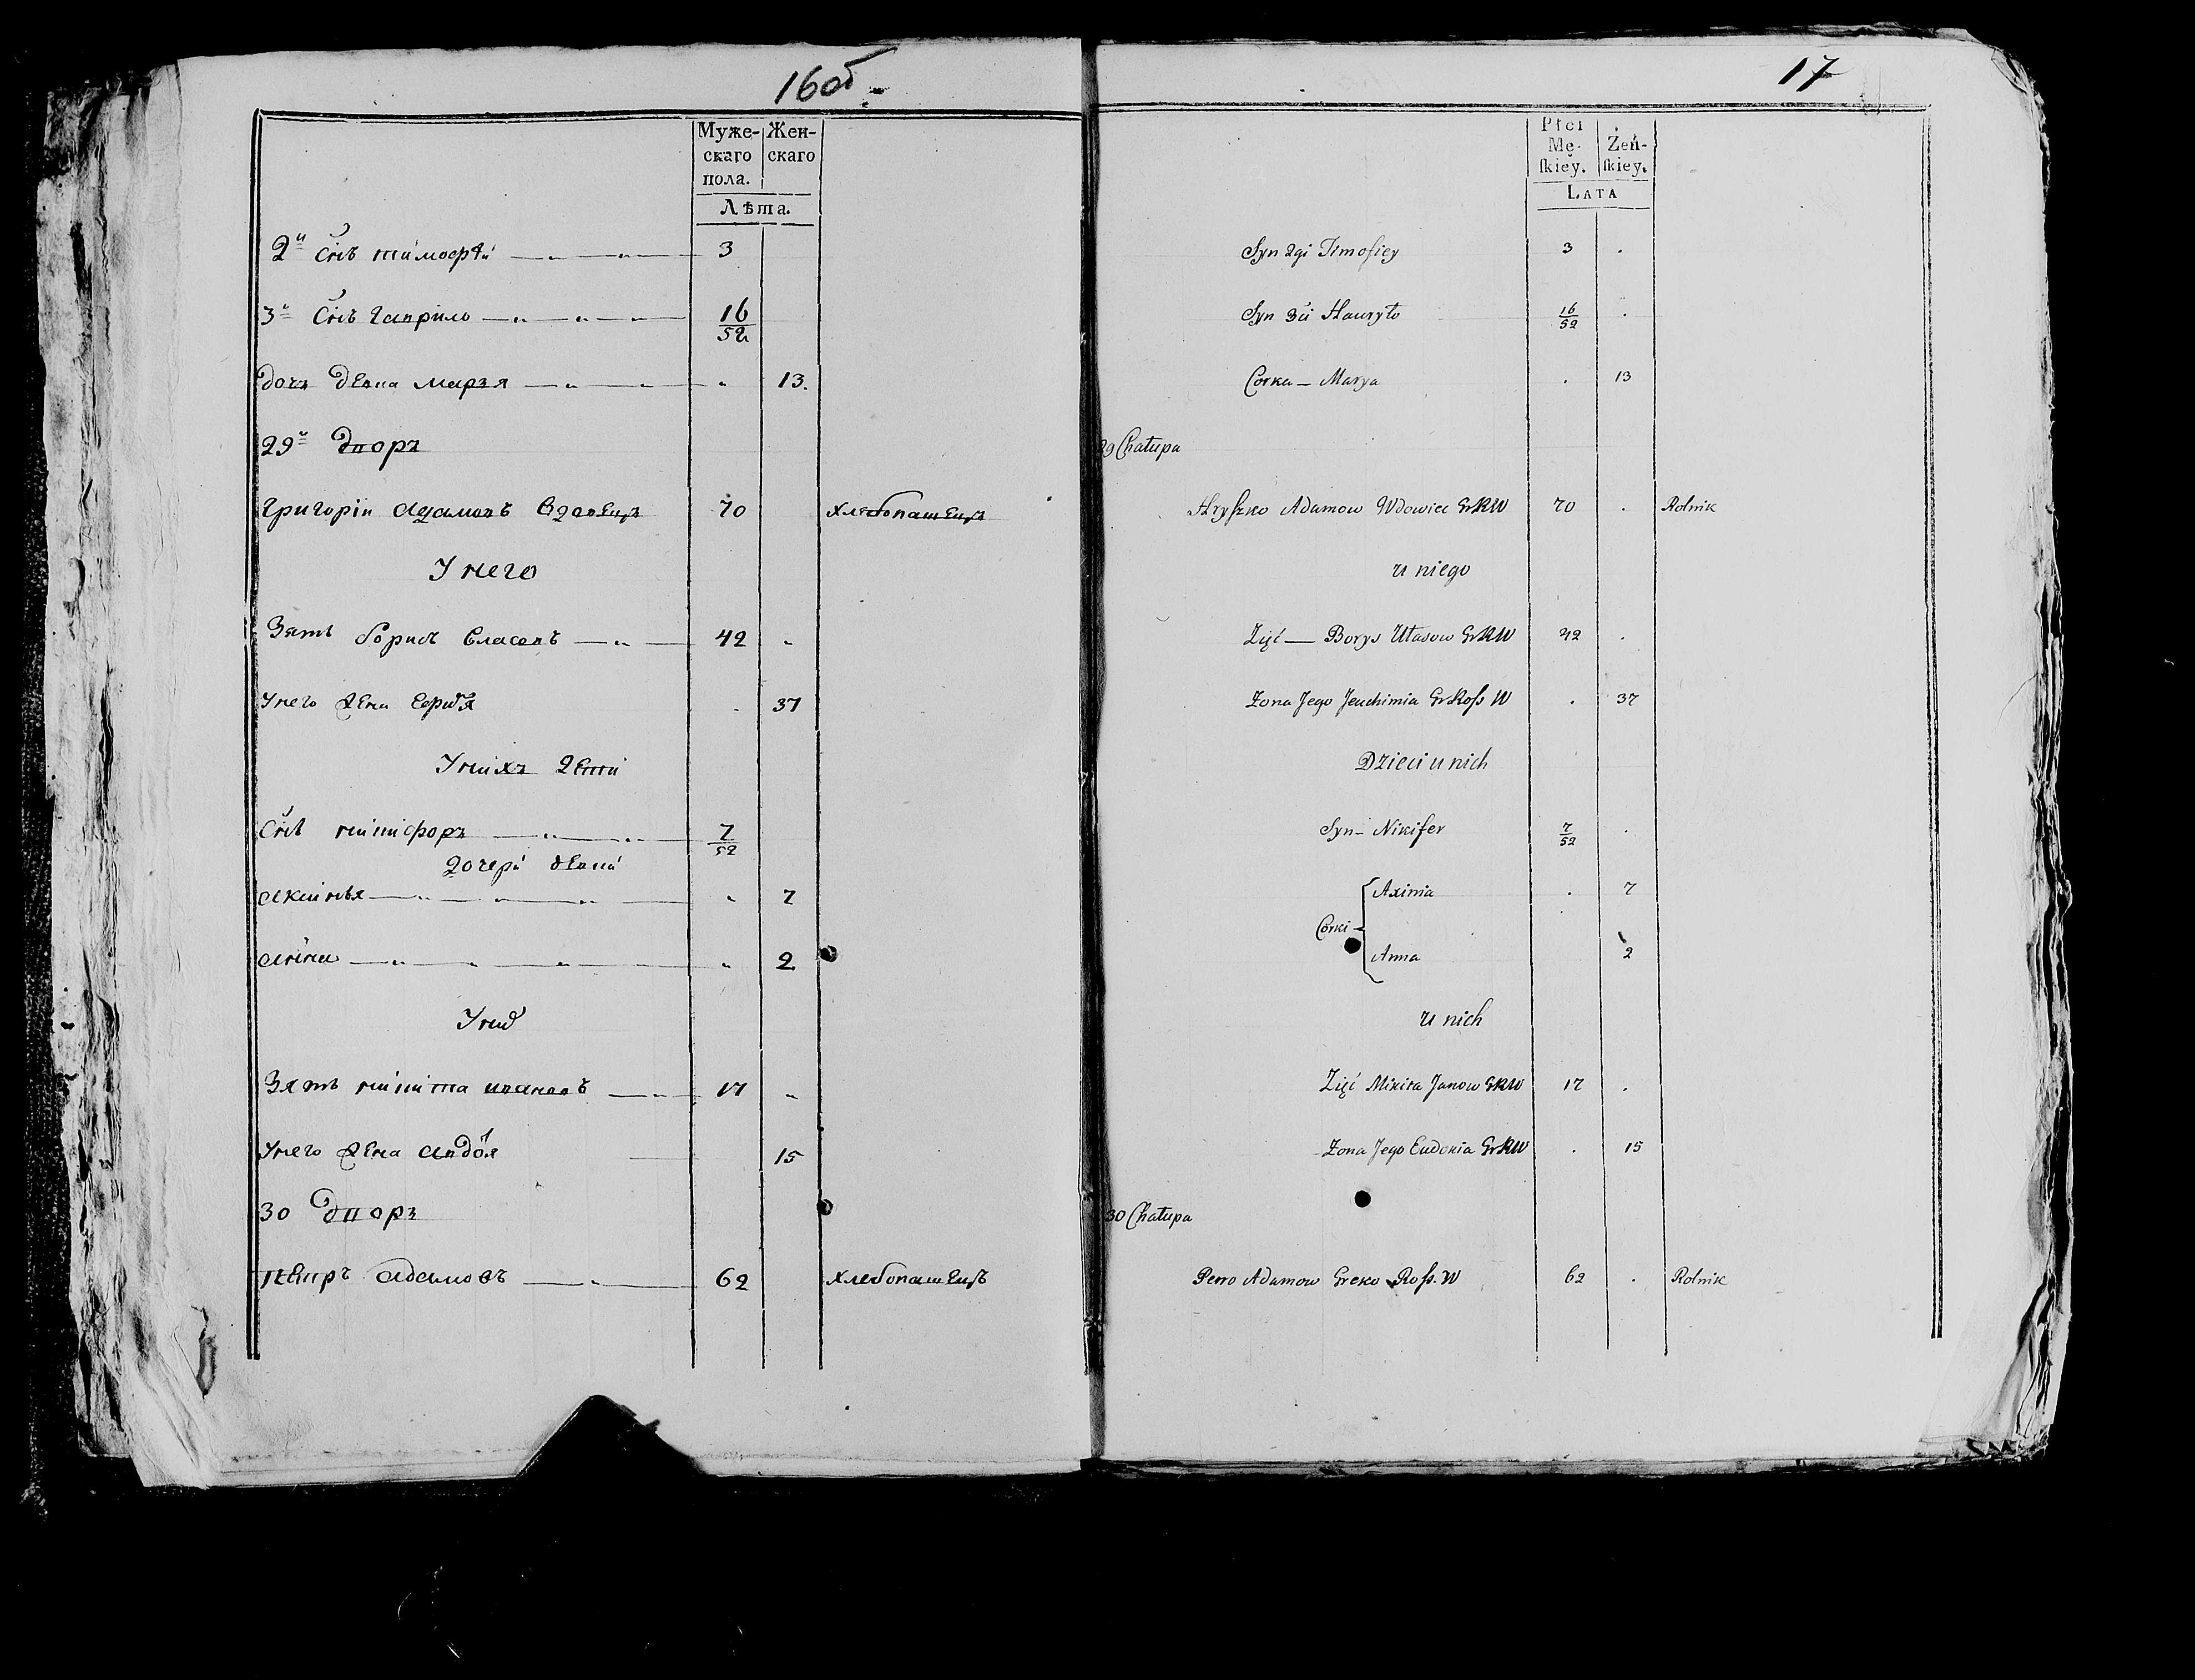 16об.
Муже-
скаго
пола.
Жен-
скаго
Лѣта.
2й Снъ тимофѣй 3
3й Снъ Гаврило 16/52
дочъ девка Маръя 13.
29й дворъ
Григорiй Адамовъ Вдовецъ 70 хлебопашецъ
У него
Зять борисъ Власовъ 42
У него жена 37
Унихъ дети
Снъ никифоръ 7/52
дочери девки
Акинья 7
Анна 2
У них
Зять никита ивановъ 17
У него жена Авдотя 15
30 дворъ
Петръ Адамовъ 62 хлебопашецъ
17
Płci
Mę-
ſkiey.
Żeń-
ſkiey.
LATA
Syn 2gi Timofiey 3 .
Syn 3ci Hauryło 16/52 .
Corka - Marya . 13
29 Chałupa
Hryſzko Adamow Wdowiec GrRW 70 . Rolnik
u niego
Zięć — Borys Ułasow GrRW 42 .
Zona Jego Jeuchimia GrRoſs W . 37
Dzieci u nich
Syn - Nikifer 7/52 .
Corki
Axinia . 7
Anna 2
u nich
Zięć Mikita Janow GRW 17 .
Zona Jego Eudokia GrRW . 15
30 Chałupa
Petro Adamow Greko Roſs. W 62 . Rolnik